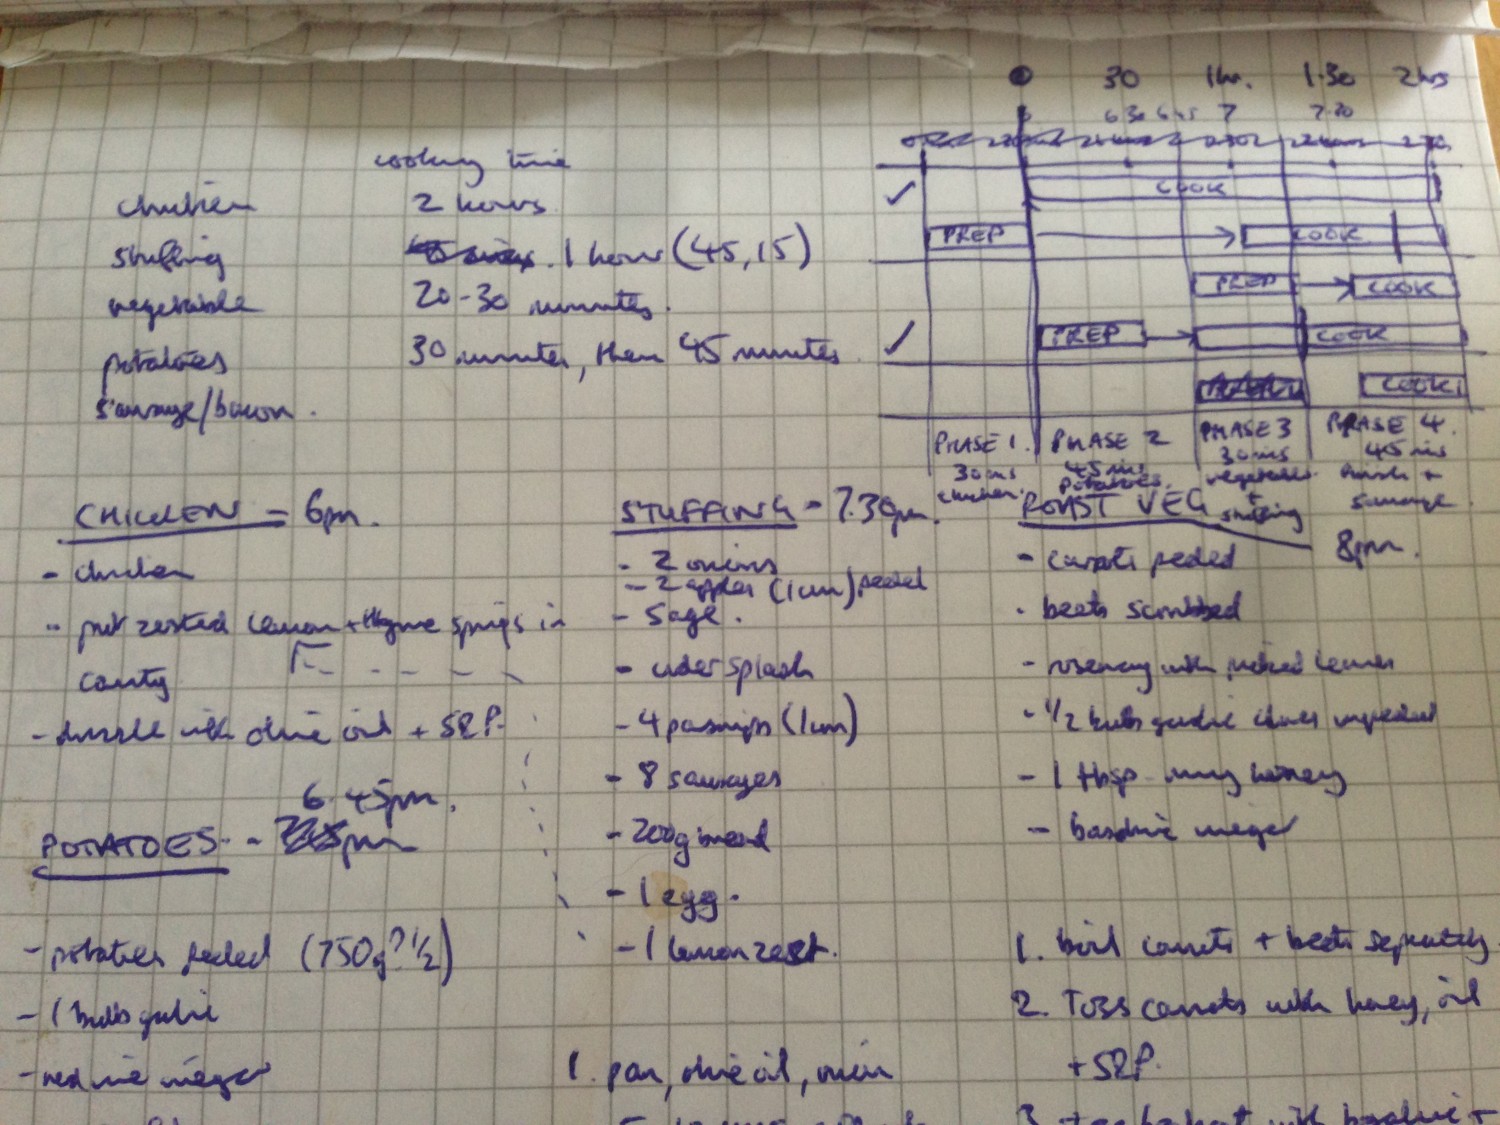 0 30 1hr. 1.30 2hrs
6 6.30 6.45 7 7.30
cooking time
chicken 2 hours
stuffing 1 hour (45,15)
vegetable 20-30 minutes.
potatoes 30 minutes, then 45 minutes
sausage/bacon.
COOK
PREP COOK
PREP COOK
PREP COOK
COOK
PHASE 1. 30 mins chicken.
PHASE 2 45 mins potatoes.
PHASE 3 30 mins vegetables + stuffing
PHASE 4. 45 mins finish + sausage.
8pm.
CHICKEN = 6pm.
- chicken
- put zested lemon + thyme sprigs in
cavity
- drizzle with olive oil + S&P.
6.45pm.
POTATOES - pm
- potatoes peeled (750g? 1/2)
- 1 bulb garlic
- red wine vinegar
STUFFING - 7.30pm.
- 2 onions
- 2 apples (1cm) peeled
- sage.
- cider splash
- 4 parsnips (1cm)
- 8 sausages
- 200g bread
- 1 egg.
- 1 lemon zest.
1. pan, olive oil, onion
ROAST VEG
- carrots peeled
- beets scrubbed
- rosemary with picked leaves
- 1/2 bulb garlic cloves unpeeled
- 1 tbsp runny honey
- balsamic vinegar
1. boil carrots + beets separately
2. Toss carrots with honey, oil
+ S&P.
3.